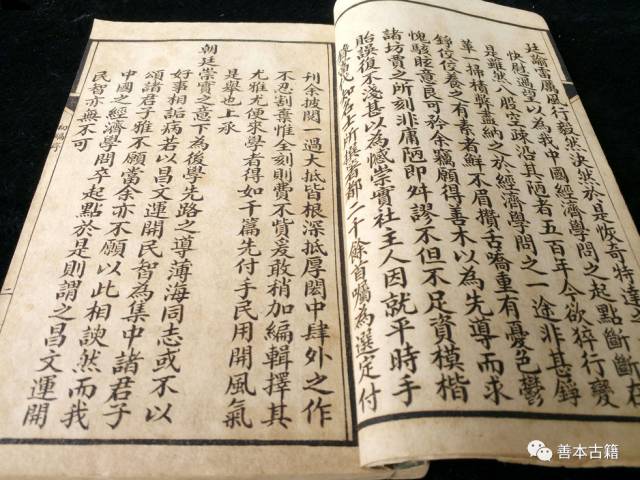 廷諭雷厲風行毅然決然於是恢奇特達之
快慰過望以為我中國經濟學問之起點斷斷在
是雖然八股空疎沿其陋者五百年今欲猝行變
革一掃積獘盡納之於經濟學問之一途非甚錚
錚佼佼養之有素者鮮不眉攢舌嶠重有憂色鬱
愧駭眩意良可矜余竊願得善本以為先導而求
諸坊賈之所刻非庸陋即舛謬不但不足資模楷
貽誤復不淺甚以為憾崇實社主人因就平時手
即名士所撰著都二千餘首囑為選定付
刊余披閱一過大抵皆根深抵厚閎中肆外之作
不忍割棄惟全刻則費不貲爰敢稍加編輯擇其
尤雅尤便來學者得如干篇先付手民用開風氣
是舉也上承
朝廷崇實之意下為後學先路之導薄海同志或不以
好事相詬病若以昌文運開民智為集中諸君子
頌諸君子雅不願當余亦不願以此相諛然而我
中國之經濟學問卒起點於是則謂之昌文運開
民智亦無不可
善本古籍